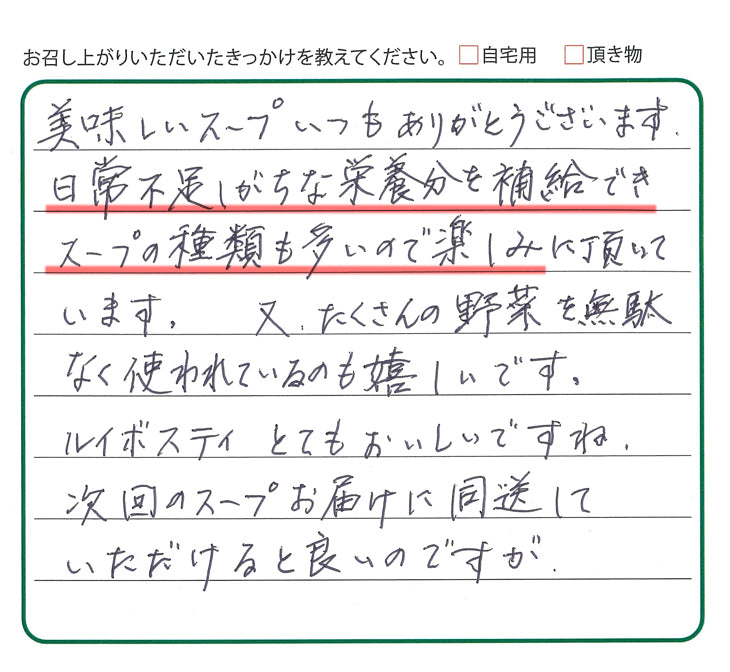 お召し上がりいただいたきっかけを教えてください。 □自宅用 □頂き物
美味しいスープいつもありがとうございます.
日常不足しがちな栄養分を補給でき
スープの種類も多いので楽しみに頂いて
います。 又、たくさんの野菜を無駄
なく使われているのも嬉しいです。
ルイボスティ とてもおいしいですね.
次回のスープお届けに同送して
いただけると良いのですが.